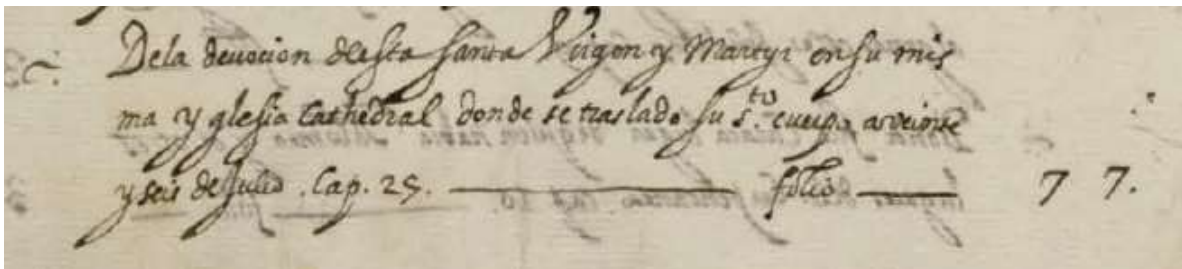 De la deuocion desta santa Virgen y Martyr en su mis
ma yglesia Cathedral donde se traslado su s.to cuerpo a veinte
y seis de Julio . Cap. 25. — folio — 77.